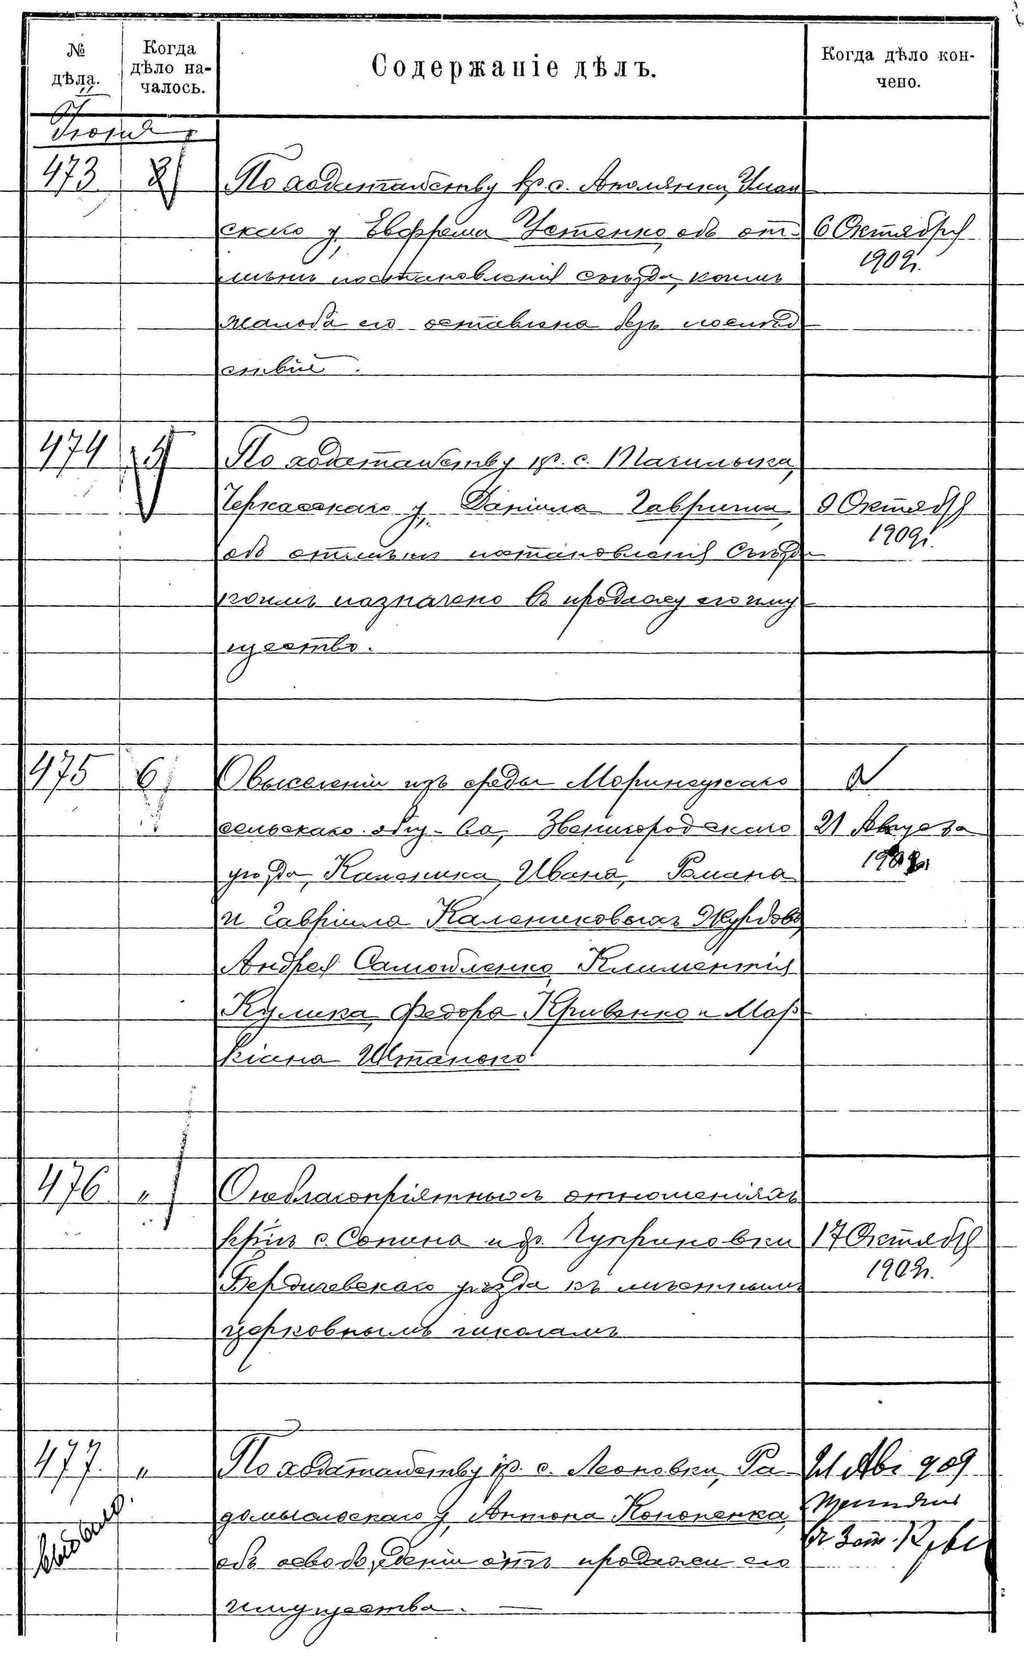 № дѣла.
Когда дѣло на-
чалось.
Содержаніе дѣлъ.
Когда дѣло кон-
чено.
Іюня
473
3
По ходатайству кр. с. Уман-
скаго у. Евфрема Устенко, объ от-
мѣнѣ постановленія съѣзда, коимъ
жалоба его оставлена безъ послѣд-
ствій.
6 Октября
1909г.
474
5
По ходатайству кр. с.
Черкасскаго у. Даніила Гаврыша,
объ отмѣнѣ постановленія съѣзда
коимъ назначено въ продажу его иму
щество.
9 Октября
1909г.
475
6
О выселеніи изъ среды Моринецкаго
сельскаго общ-ва, Звенигородскаго
уѣзда, Каленика, Ивана, Романа
и Гавріила Калениковыхъ
Андрея Самойленко, Климентія
Кулика, Федора Кривенко и Мар-
кіана Штанько
21 Августа
476
"
О неблагопріятныхъ отношеніяхъ
кр-нъ с. Сопина и др. Чуприновки
Бердичевскаго уѣзда къ мѣстнымъ
церковнымъ школамъ
17 Октября
1909г.
477.
"
выбыло.
По ходатайству кр. с. Леоновки, Ра-
домысльскаго у. Антона Кононенка,
объ освобожденіи отъ продажи его
имущества.
21 Авг 909